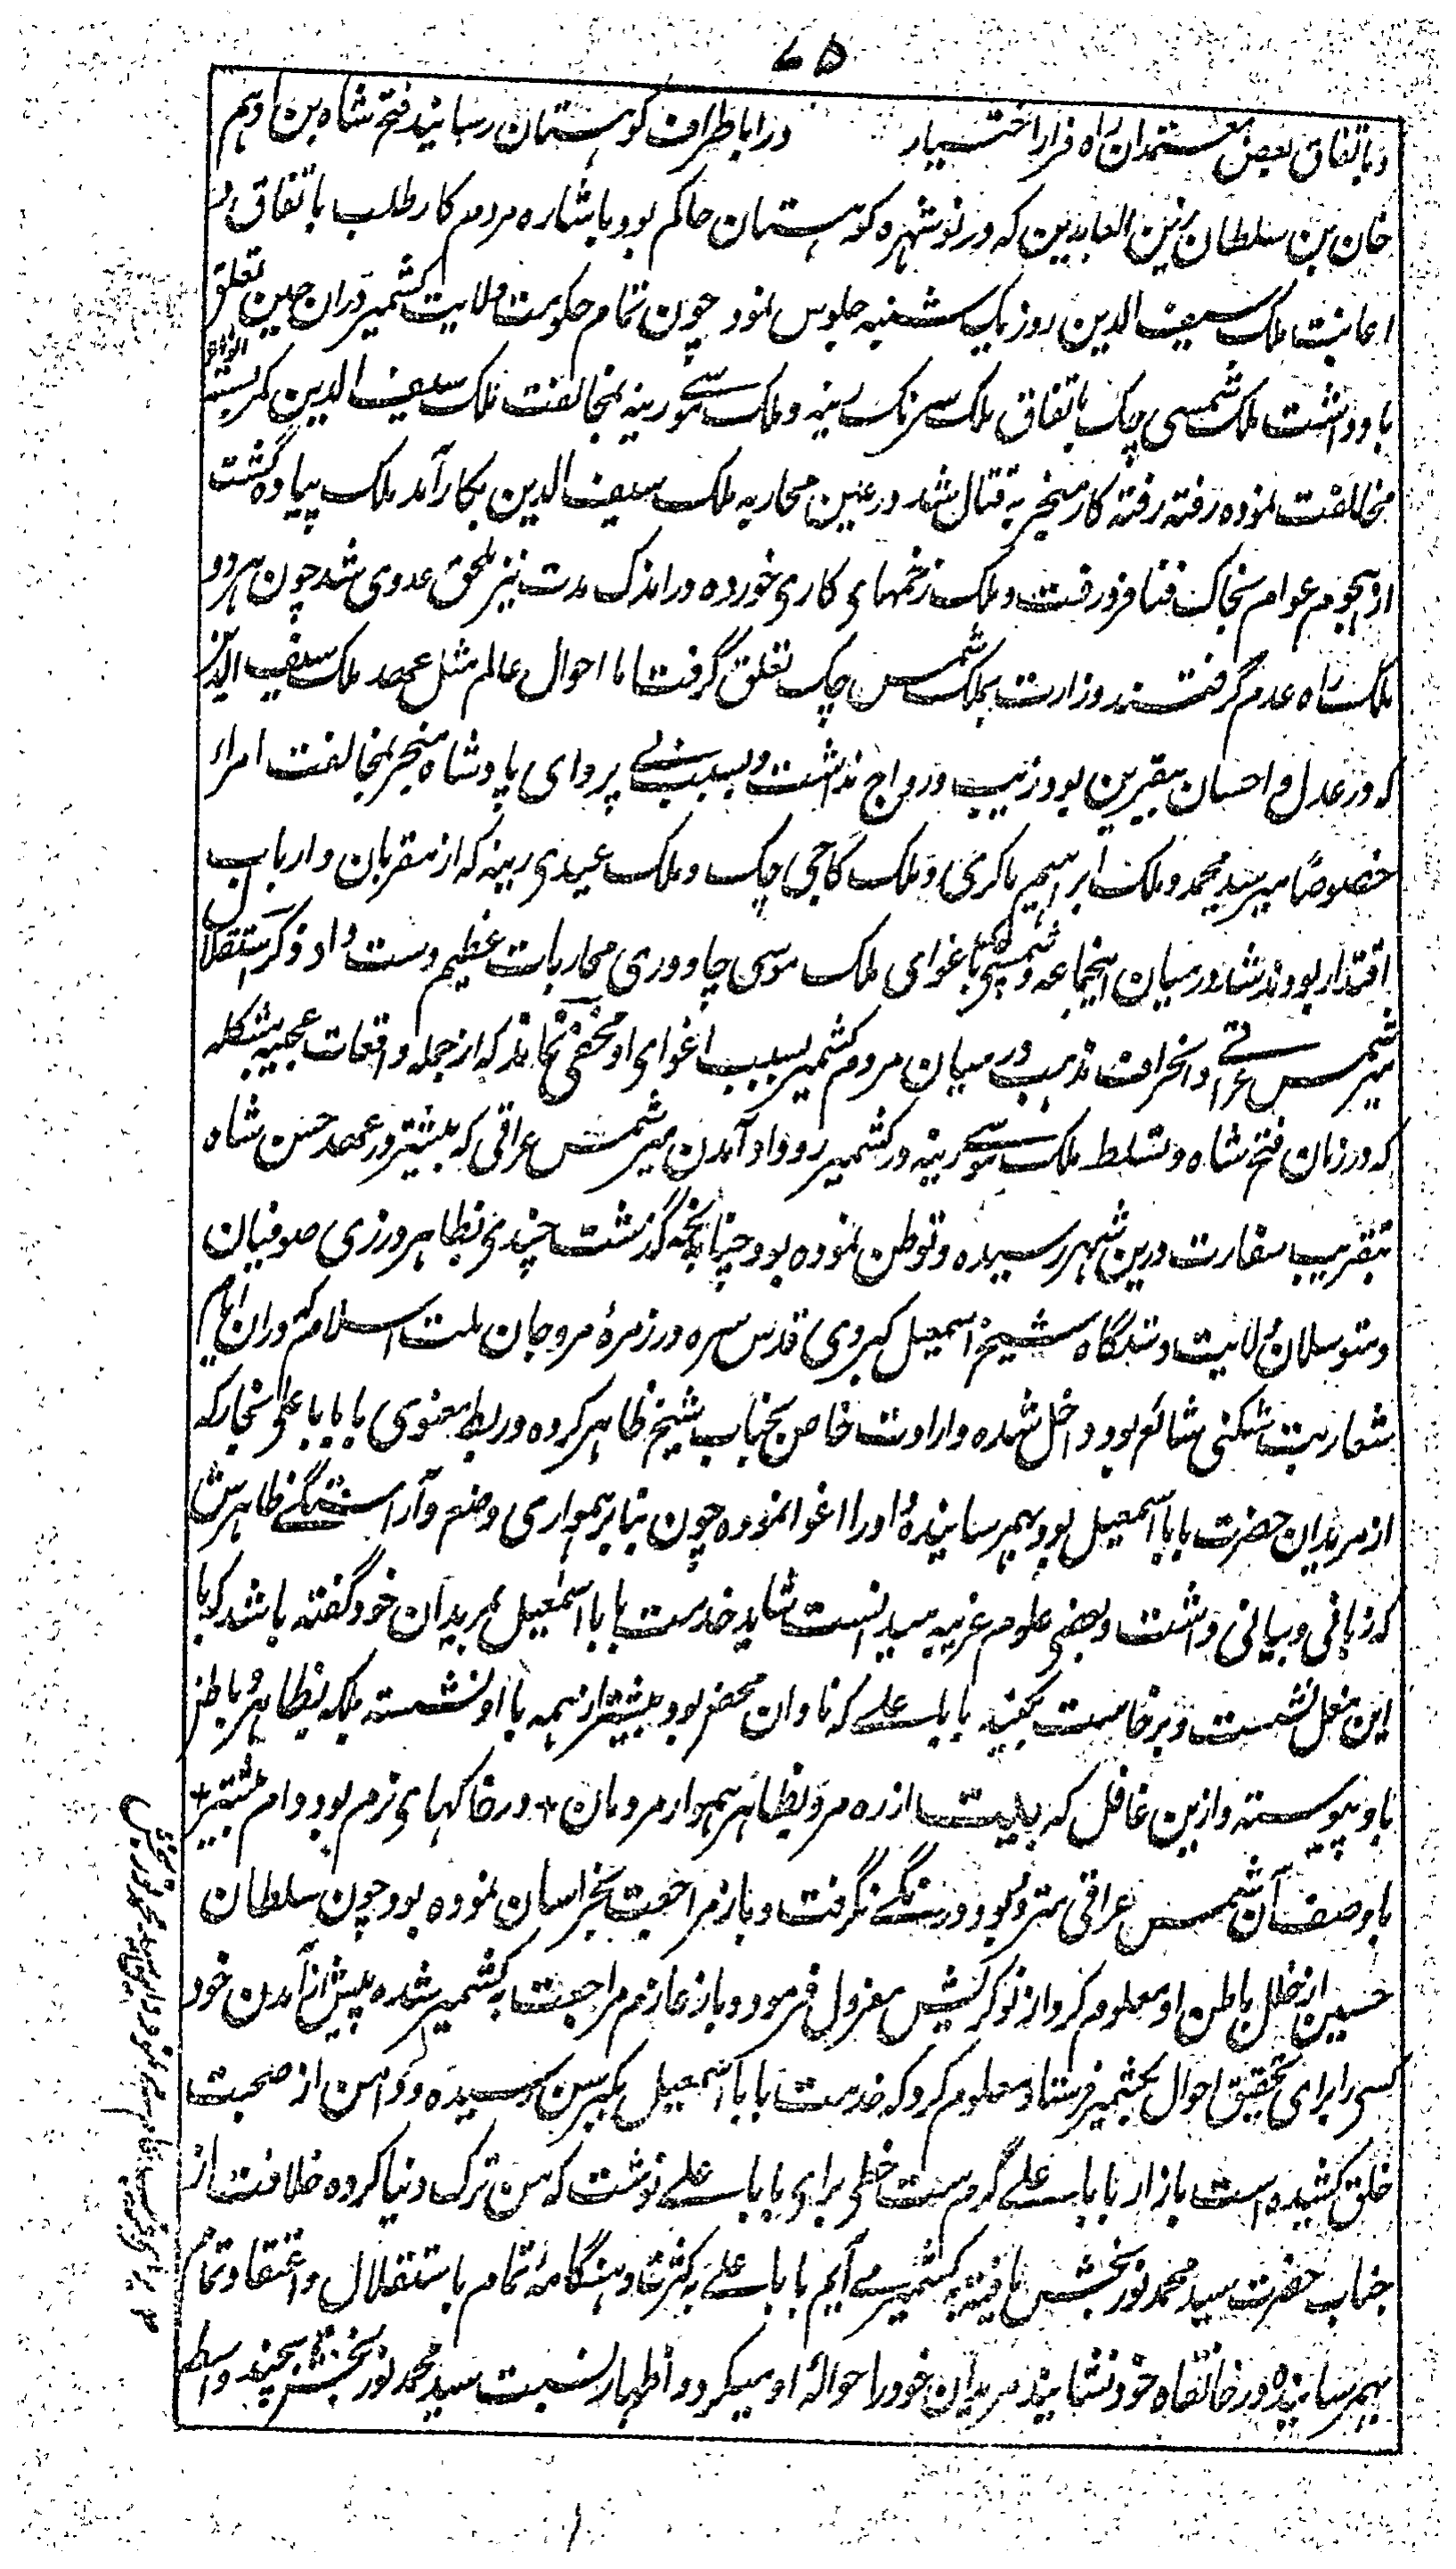 ۷۵
و باتفاق بعض معتمدان راه فرار اختیار در اباطراف کوهستان رسانید فتح شاه بن ادهم
خان بن سلطان زین العابدین که در نوشهره کوهستان حاکم بود باشاره مردم کار طلب باتفاق و
اعانت ملک سیف الدین روز یکشنبه جلوس نمود چون تمام حکومت ولایت کشمیر دران حین تعلق
باو داشت ملک شمسی چک باتفاق ملک سرنک رینه و ملک موسے رینه بمخالفت ملک سیف الدین کمر بسته
مخالفت نموده رفته رفته کار منجر بقتال شد در عین محاربه ملک سیف الدین بکار آمد ملک پیاده گشت
از هجوم عوام بخاک فنا فرو رفت و ملک زخمهای کاری خورده در اندک مدت نیز ملحق عدوی شد چون هر دو
ملک راه عدم گرفتند وزارت بملک شمس چک تعلق گرفت اما احوال عالم مثل عهد ملک سیف الدین
که در عدل و احسان بیقرین بود زیب و رواج نداشت و بسبب بے پروای پادشاه منجر بمخالفت امراء
خصوصاً میر سید محمد و ملک ابراهیم ماکری و ملک کاجی چک و ملک عیدی رینه که از مقربان و ارباب
اقتدار بودند شد درمیان اینجماعه و شمسی چک باغوای ملک موسی چاودری محاربات عظیم دست داد ذکر استقلال
میر شمس عراقے و انحراف مذهب در میان مردم کشمیر بسبب اغوای او مخفی نماند که از جمله واقعات عجیبه مشکله
که در زمان فتح شاه و تسلط ملک موسے رینه در کشمیر روداد آمدن میر شمس عراقی که پیشتر در عهد حسن شاه
بتقریب سفارت درین شهر رسیده و توطن نموده بود چنانچه گزشت چندی بظاهر ورزی صوفیان
و متوسلان ولایت دستگاه شیخ اسمعیل کبروی قدس سره در زمرهٔ مروجان ملت اسلام که دران ایام
شعار بت شکنی شائع بود داخل شده و ارادت خاص بجناب شیخ ظاهر کرده و ربط معنوی با بابا علی نجار که
از مریدان حضرت بابا اسمعیل بود بهم رسانیده او را اغوا نموده چون بنا بر همواری وضع و آراستگے ظاهرش
که زبانی و بیانی داشت و بعضی علوم غریبه میدانست شاید خدمت بابا اسمعیل بمریدان خود گفته باشد که با
این مغل نشست و برخاست بکنید بابا علے که نادان محض بود بیشتر از همه با او نشسته بلکه بظاهر و باطن
باو پیوسته و ازین غافل که بیت از ره مرو بظاهر هموار مردمان * در خاکهای نرم بود دام بیشتر *
باوصف آن شمس عراقی متردد بود و رنگے نگرفت و باز مراجعت بخراسان نموده بود چون سلطان
حسین از خلل باطن او معلوم کرد از نوکریش معزول فرمود و باز عازم مراجعت به کشمیر شده پیش از آمدن خود
کسی را برای تحقیق احوال بکشمیر فرستاد معلوم کرد که خدمت بابا اسمعیل بکبر سن رسیده و دامن از صحبت
خلق کشیده است بازار بابا علے گرم است خطی برای بابا علے نوشت که من ترک دنیا کرده خلافت از
جناب حضرت سید محمد نوربخش یافته به کشمیر مے آیم بابا علے بکثرت و هنگامهٔ تمام باستقلال و اعتقاد تمام
بهم رسانیده در خانقاه خود نشانید مریدان خود را حوالهٔ او میکرد و اظهار نسبت سید محمد نوربخش بچند واسطه